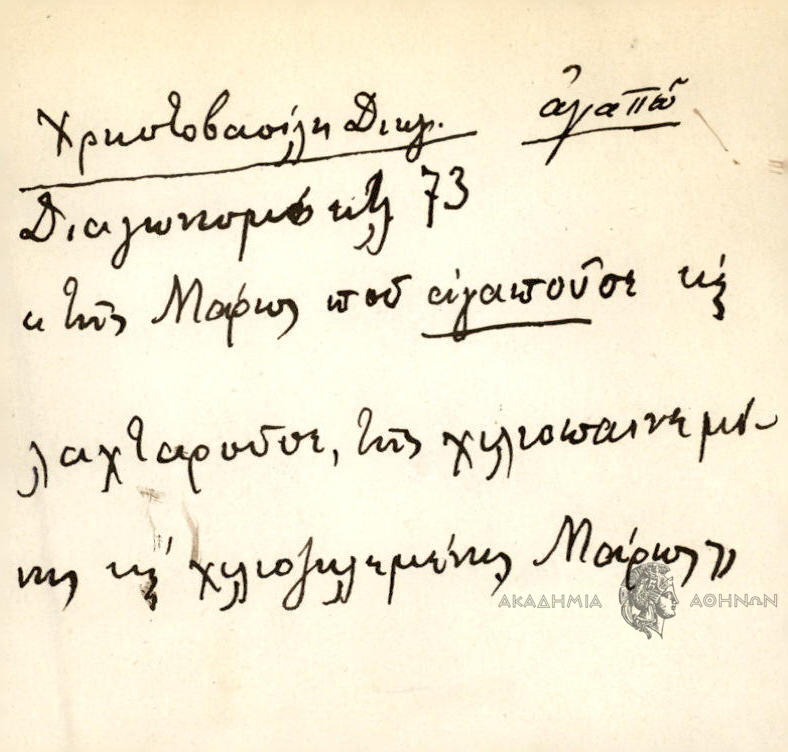 Χρηστοβασίλη Διηγ. ἀγαπῶ
Διαγωνισμὸς 73
τῆς Μάρως ποῦ ἀγαποῦσε κή
λαχταροῦσε, τῆς χιλιοπαινεμέ-
νης κή χιλιοζηλεμένης Μάρως»
ΑΚΑΔΗΜΙΑ ΑΘΗΝΩΝ